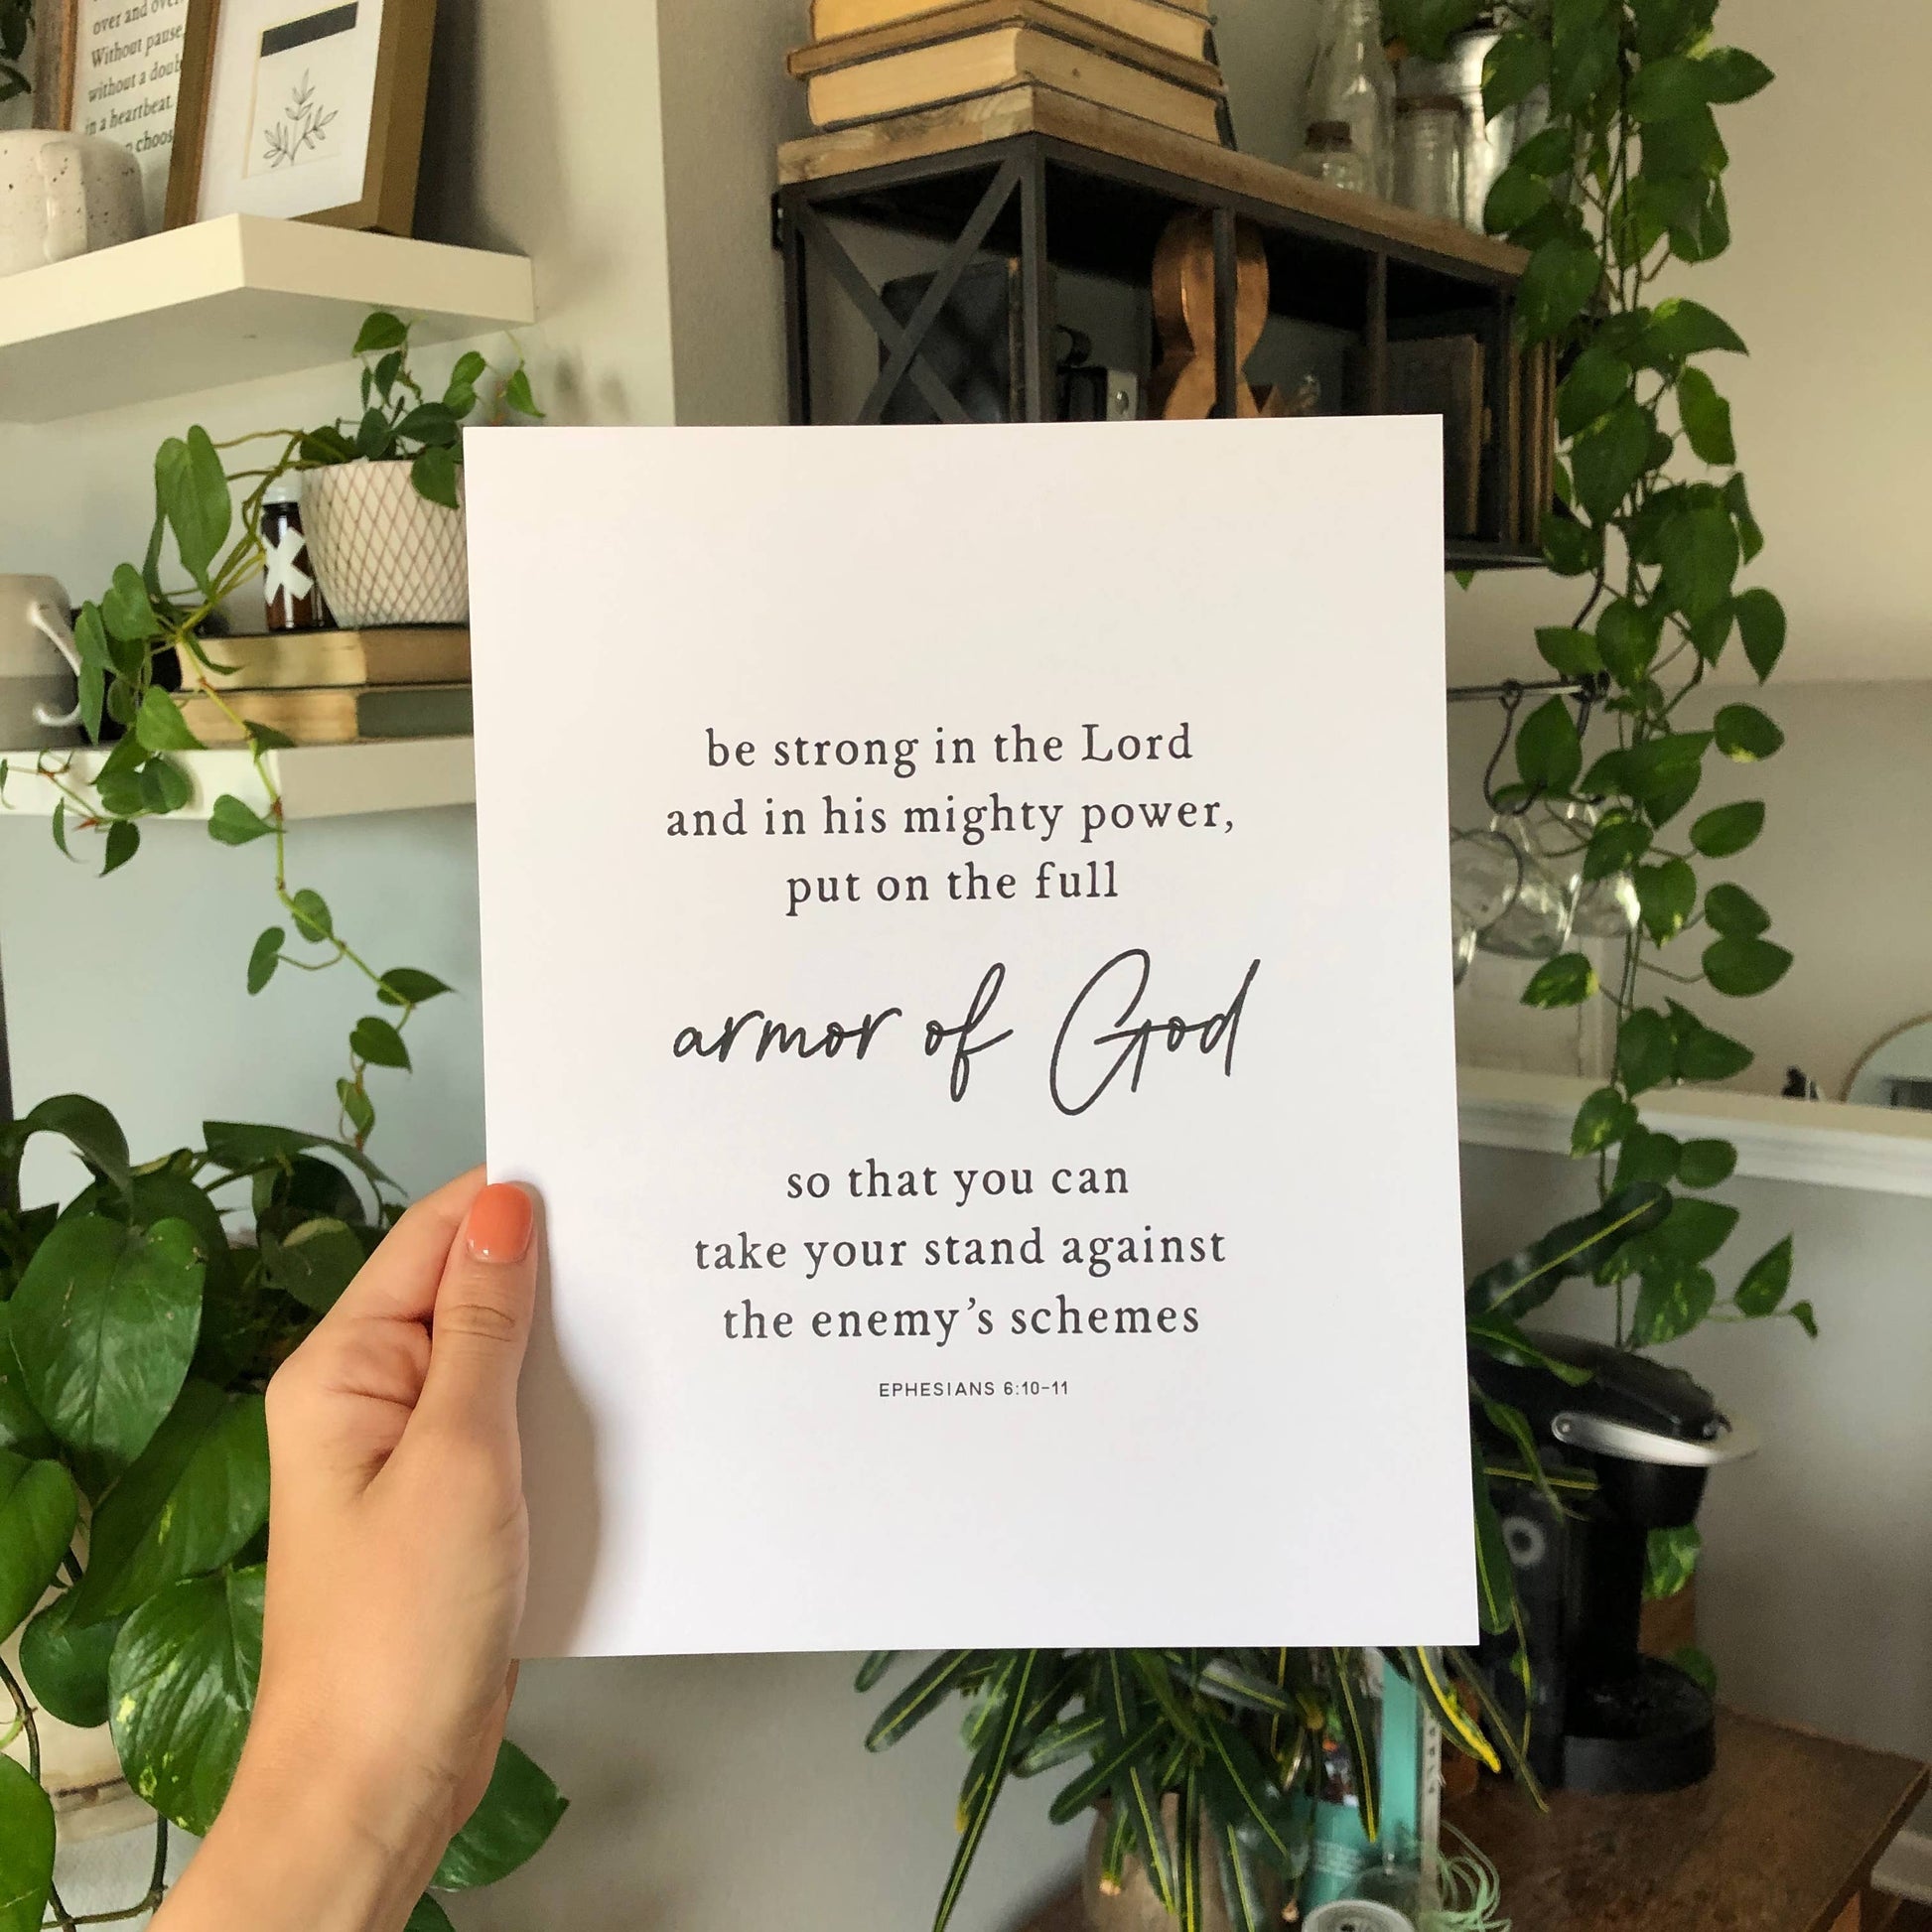 over and over.
Without pause,
without a doubt
in a heartbeat.
be strong in the Lord
and in his mighty power,
put on the full
armor of God
so that you can
take your stand against
the enemy's schemes
EPHESIANS 6:10-11